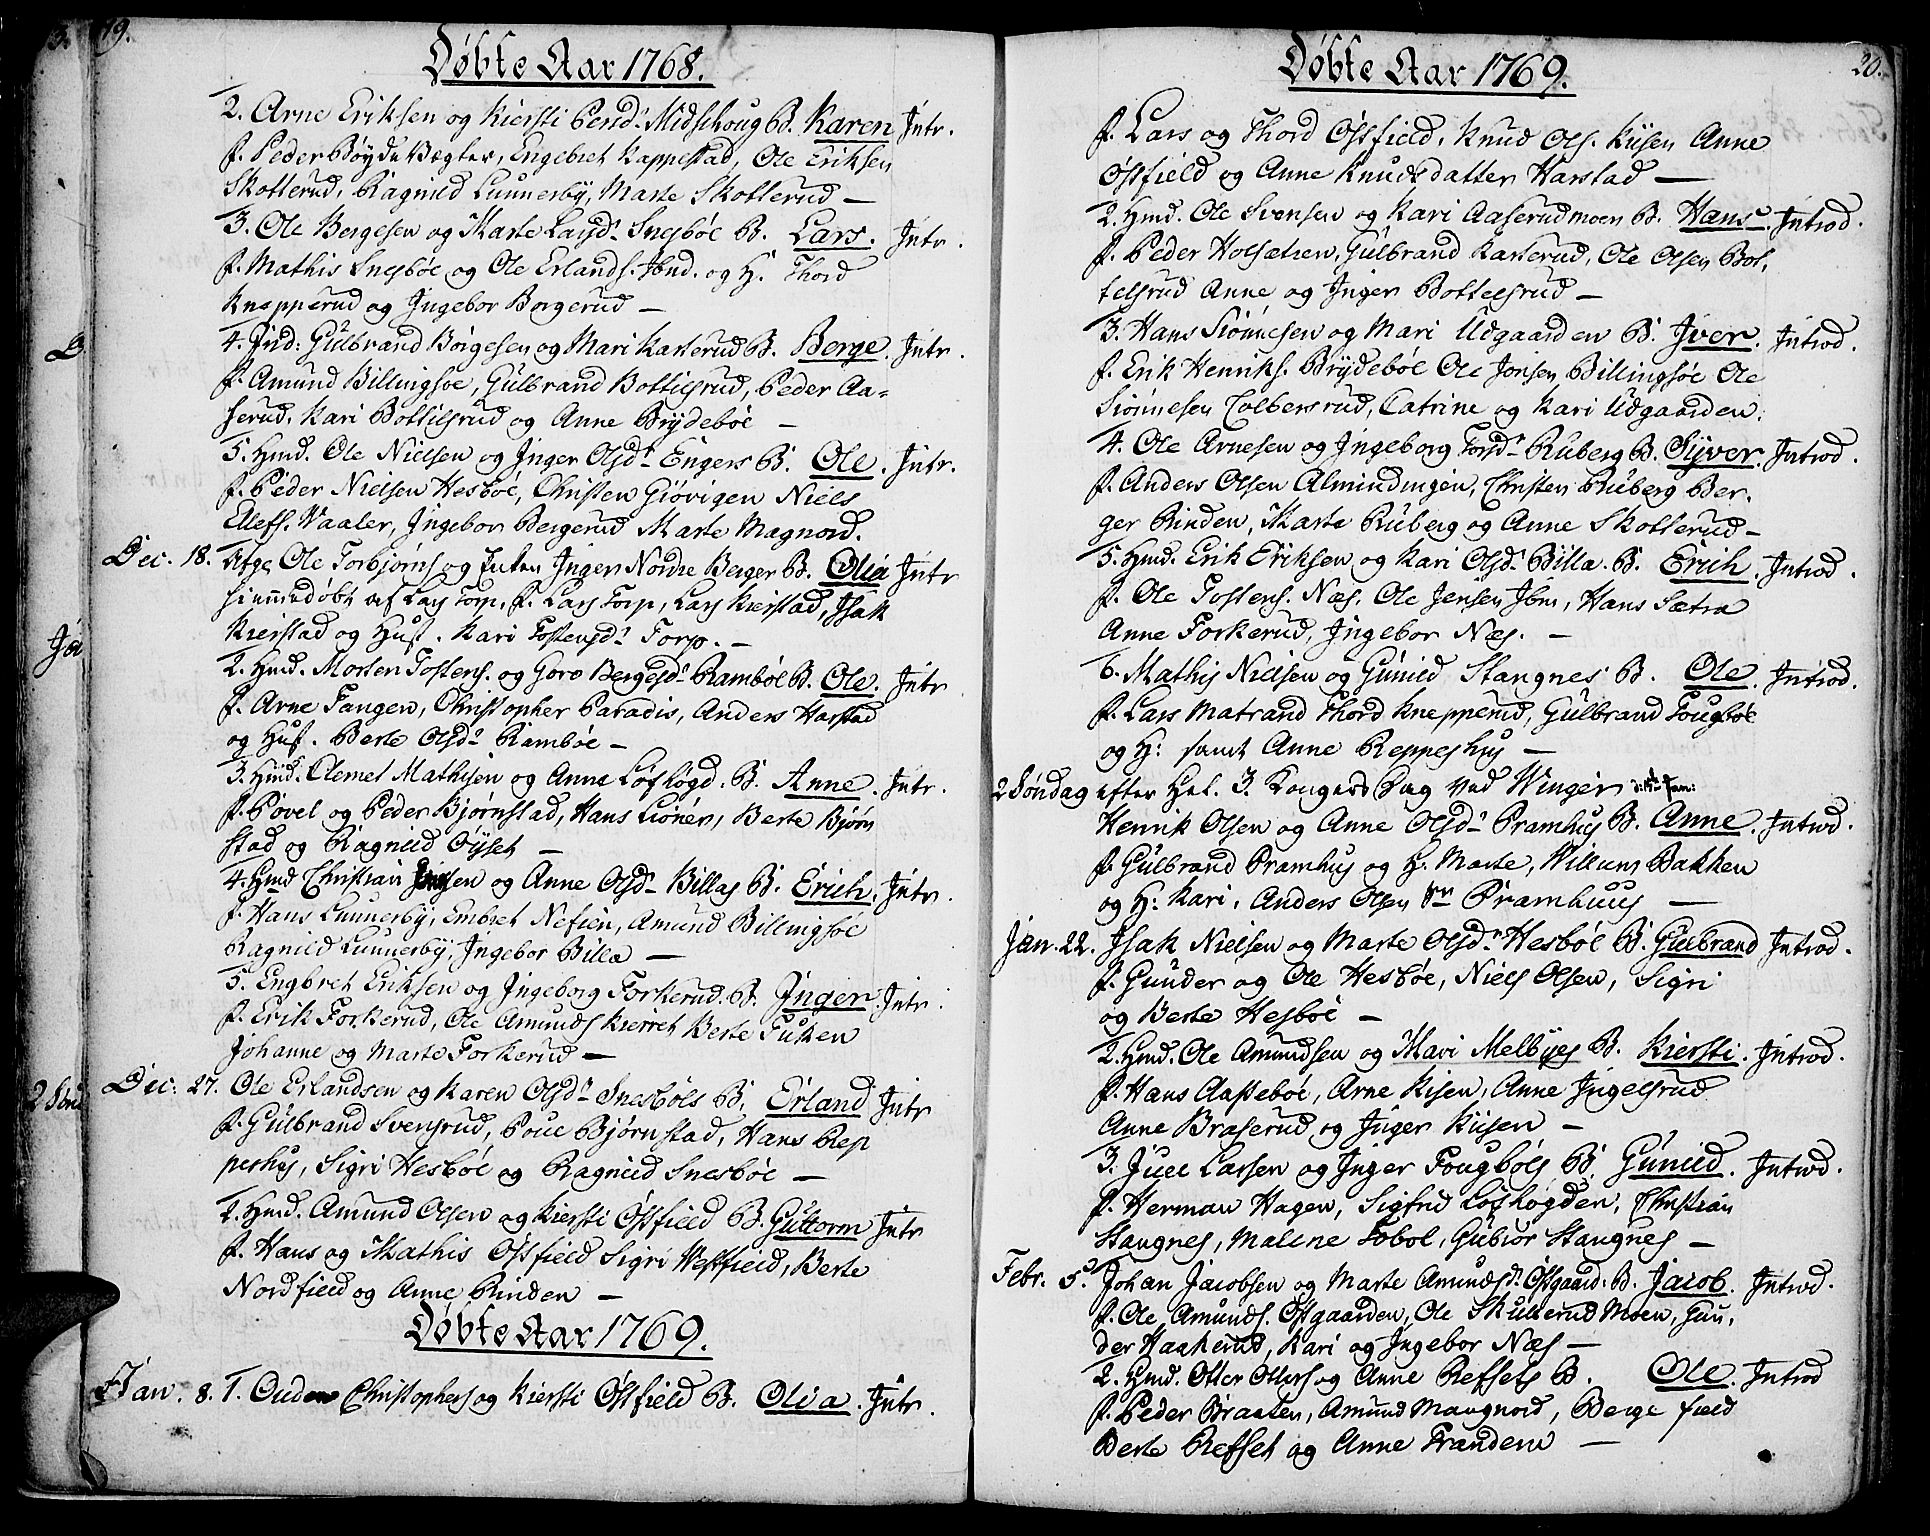 19.
Døbte Aar 1768.
2. Arne Eriksen og Kiersti Persd. Midschoug B. Karen Intr.
f. Peder Bøyde Vægter, Engebret Kappestad, Ole Eriksen
Skotterud, Ragnild Lunnerby, Marte Skotterud —
3. Ole Bergesen og Marte Larsdr Snesbøe B. Lars. Intr.
f. Mathis Snesbøe og Ole Erlands. Ibnd. og H. Thord
Knepperud og Ingebor Bergerud —
4. Gulbrand Børgesen og Mari Kasterud B. Berge. Intr.
f. Amund Billingsøe, Gulbrand Bottilsrud, Peder Aa=
serud, Kari Bottilsrud og Anne Brydebøe —
5. Hmd. Ole Nielsen og Inger Olsdr Engers B. Ole. Intr.
f. Peder Nielsen Hesbøe, Christen Giøvigen Niels
Elefs. Vaaler, Ingebor Bergerud Marte Magnord.
Dec. 18. Ole Torbjørns og Inger Nordre Berger B. Olia Intr
hiemmedøbt af Lars Torp, f. Lars Torp, Lars Kierstad, Isak
Kierstad og Hust. Kari Tostensdr Torp. —
2. Hmd. Morten Tostens. og Goro Bergesdr Rambøl B. Ole. Intr
f. Arne Fangen, Christopher Paradis, Anders Harstad
og Hust. Berte Olsdr Rambøe —
3. Hmd. Clemet Mathisen og Anne Løfhøgd. B. Anne. Intr.
f. Povel og Peder Bjørnstad, Hans Lionen, Berte Bjørn
stad og Ragnild Oyset —
4. Hmd Christian og Anne Olsdr Billas B. Erich. Intr.
f. Hans Lunnerby, Embret Nefien, Amund Billingsøe
Ragnild Lunnerby, Ingebor Billa —
5. Engbret Eriksen og Ingeborg Forkerud. B. Inger. Intr.
f. Erik Forkerud, Ole Amunds Kierret Berte Tuken
Johanne og Marte Forkerud —
Dec: 27. Ole Erlandsen og Karen Olsdr Snesbøls B. Erland Intr
f. Gulbrand Svensrud, Poul Bjørnstad, Hans Rep
peshus, Sigri Hesbøe og Ragnild Snesbøe —
2. Hmd. Amund Olsen og Kiersti Østfield B. Guttorm Intr
f. Hans og Mathis Østfield Sigri Vestfield, Berte
Nordfield og Anne Rinden —
Døbte Aar 1769.
Jan. 8. 1. Ouden Christophers og Kiersti Østfield B. Olia. Intr.
20.
Døbte Aar 1769.
f. Lars og Thord Østfield, Knud Ols. Kiisen Anne
Østfield og Anne Knudsdatter Harstad —
2. Hmd. Ole Svensen og Kari Aaserudmoen B. Hans. Introd.
f. Peder Holsætren, Gulbrand Kasterud, Ole Olsen Bot,
telsrud Anne og Inger Bottelsrud —
3. Hans Siønnesen og Mari Udgaarden B. Iver. Introd.
f. Erik Henriks. Brydebøe Ole Jonsen Billingsøe Ole
Siønnesen Tolbersrud, Catrine og Kari Udgaarden.
4. Ole Arnesen og Ingeborg Torsdr Ruberg B. Syver. Introd.
f. Anders Olsen Almindingen, Christen Ruberg Ber.
ger Rinden, Marte Ruberg og Anne Skotterud —
5. Hmd. Erik Eriksen og Kari Olsdr Billa. B. Erich. Introd.
f. Ole Tostens. Næs. Ole Jensen Ibm, Hans Sætra
Anne Forkerud, Ingebor Næs. —
6. Mathis Nielsen og Gunild Stangnes B. Ole. Introd.
f. Lars Matrand Thord Knepperud, Gulbrand Tougbøe
og H: samt Anne Reppeshus —
2 Søndag efter Hel. 3. Kongers Dag ved Winger
Henrik Olsen og Anne Olsdr Pramhus B. Anne. Introd.
f. Gulbrand Pramhus og H. Marte, Willum Bakken
og H: Kari, Anders Olsen Pramhuus —
Jan. 22. Isak Nielsen og Marte Olsdr Hesbøl B. Gulbrand Introd.
f. Gunder og Ole Hesbøe, Niels Olsen, Sigri
og Berte Hesbøe —
2. Hmd. Ole Amundsen og Mari Melbyes B. Kiersti. Introd.
f. Hans Aastebøe, Arne Kisen, Anne Ingelsrud
Anne Braserud og Inger Kiisen —
3. Juel Larsen og Inger Tougbøls B. Gunild. Introd.
f. Herman Hagen, Sigfrid Løfhøgden, Christian
Stangnes, Malene Tobol, Gubiør Stangnes —
Febr. 5. Johan Jacobsen og Marte Amundsd. Østgaard. B. Jacob. Introd.
f. Ole Amunds. Østgaarden, Ole Skullerud Moen, Gun,
der Haakerud, Kari og Ingebor Næs —
2. Hmd. Otter Otters og Anne Refsets B. Ole. Introd
f. Peder Braaten, Amund Maugnord, Berge field
Berte Refset og Anne Tranders —